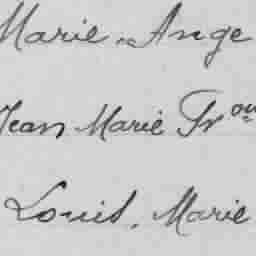 Marie-Ange
Jean Marie Frou
Louis, Marie